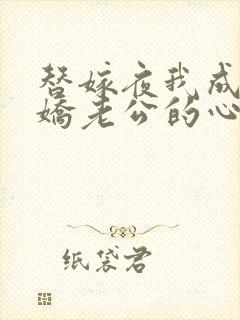 替嫁夜我成
娇老公的心
纸袋君